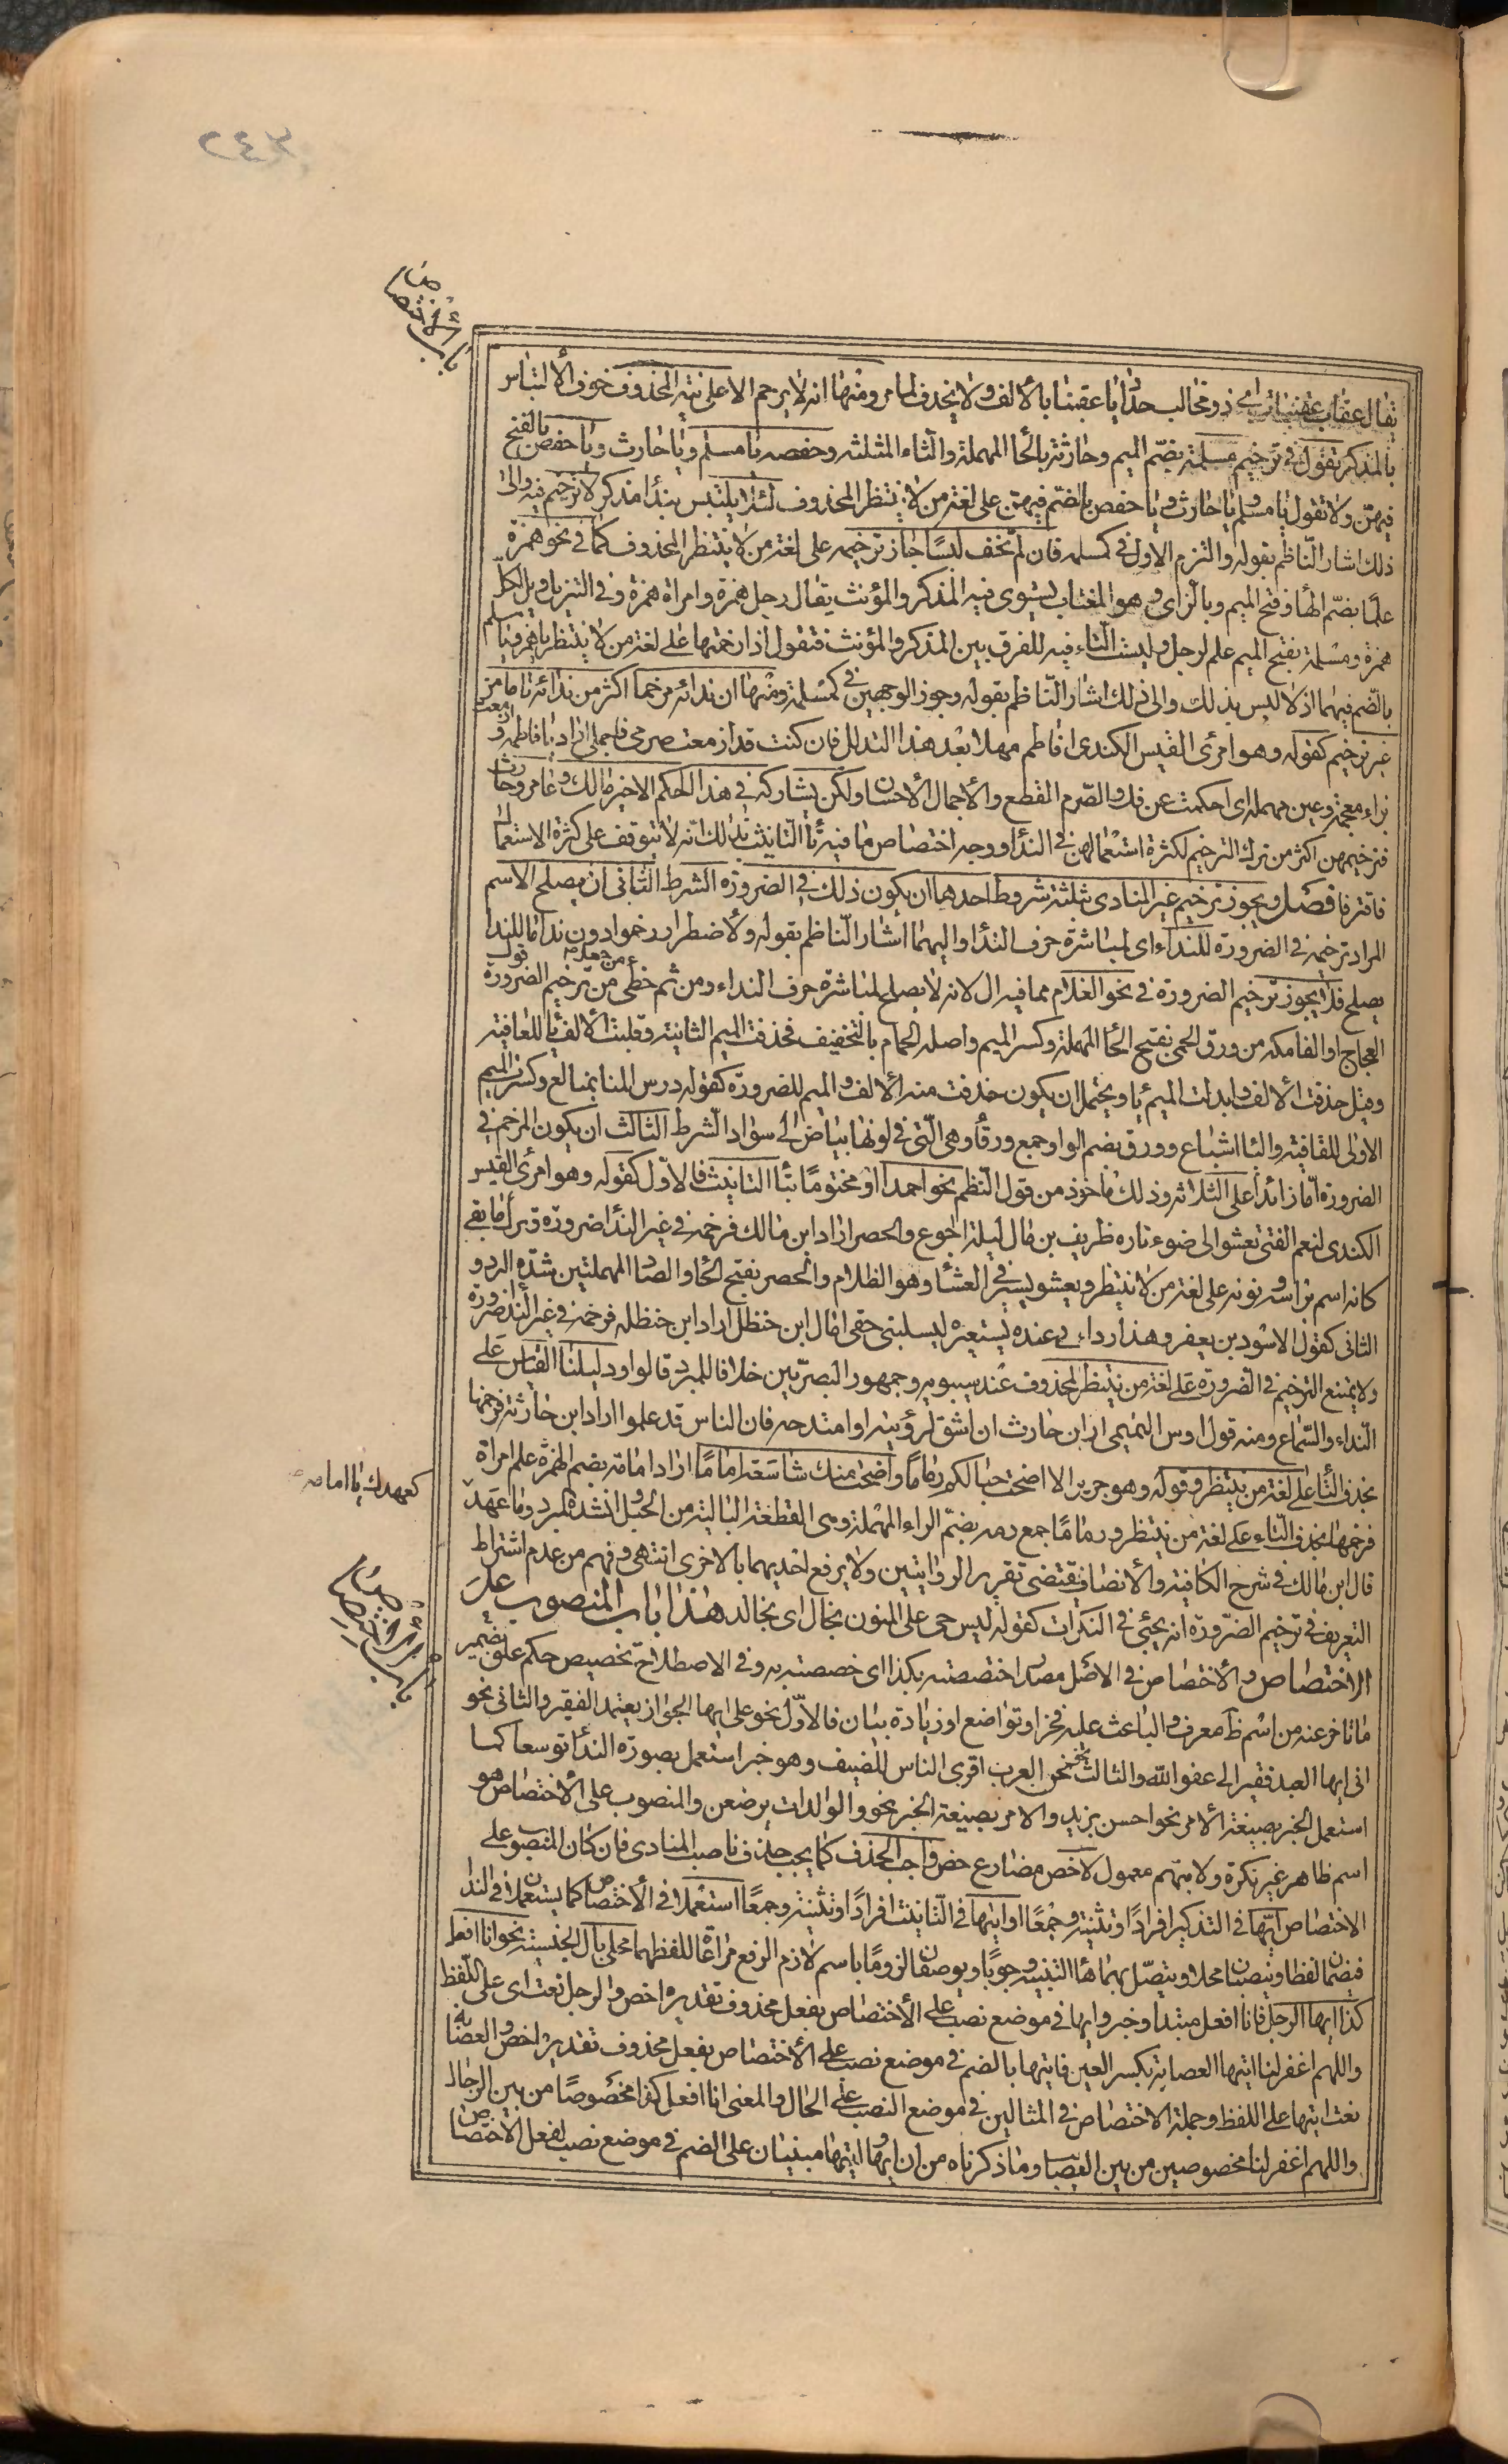 باب الاختصاص
يقال عقاب عقنباة اى ذو مخالب حداد يا عقبنا بالألف ولا يحذف لما مر ومنها انه لا يرخم الا على نية المحذوف خوف الالتباس
بالمذكر تقول فى ترخيم مسلمة بضم الميم وحارثة بالحا المهملة والثاء المثلثه وحفصه يا مسلم ويا حارث ويا حفص بالفتح
فيهن ولا تقول يا مسلم يا حارث ويا حفص بالضم فيهن على لغة من لا ينتظر المحذوف لئلا يلتبس بندا مذكر لا ترخيم فيه والى
ذلك اشار الناظم بقوله والتزم الاول فى كمسلمه فان لم يخف لبسا جاز ترخيمه على لغة من لا ينتظر المحذوف كما فى نحو همزة
علما بضم الها وفتح الميم وبالزاى وهو المغتاب يستوى فيه المذكر والمؤنث يقال رجل همزة وامراة همزة وفى التنزيل ويل لكل
همزة ومسلمة بفتح الميم علم لرجل وليست التاء فيه للفرق بين المذكر والمؤنث فتقول اذا رخمتها على لغة من لا ينتظر يا همز ويا مسلم
بالضم فيهما اذ لا لبس بذلك والى ذلك اشار الناظم بقوله وجوز الوجهين فى كمسلمة ومنها ان ندائه مرخما اكثر من ندائه تاما من
غير ترخيم كقوله وهو امرئ القيس الكندى افاطم مهلا بعد هذا التدلل فان كنت قد ازمعت صرمى فاجملى اراد يا فاطمه و ازمعت
بزاء معجمة وعين مهملة اى احكمت عزمك والصرم القطع والاجمال الاحسان ولكن يشاركه فى هذا الحكم الاخير مالك وعامر وحارث
فترخيمهن اكثر من ترك الترخيم لكثرة استعمالهن فى الندا ووجه اختصاص ما فيه تا التانيث بذلك انه لا يتوقف على كثرة الاستعمال
فافترقا فصل ويجوز ترخيم غير المنادى بثلثة شروط احدها ان يكون ذلك فى الضرورة الشرط الثانى ان يصلح الاسم
المراد ترخيمه فى الضرورة للنداء اى لمباشرة حرف الندا واليهما اشار الناظم بقوله ولاضطرار رخموا دون ندا ما للندا
يصلح فلا يجوز ترخيم الضرورة فى نحو الغلام مما فيه ال لانه لا يصلح لمباشرة حرف النداء ومن ثم خطئ من جعل من ترخيم الضرورة قول
العجاج اوالفا مكه من ورق الحمى بفتح الحا المهملة وكسر الميم واصله الحمام بالتخفيف فحذفت الميم الثانية وقلبت الالف يا للقافية
وقيل حذفت الالف وابدلت الميم يا ويحتمل ان يكون حذفت منه الالف والميم للضرورة كقوله درس المنا بمتالع وكسرت الميم
الاولى للقافية واليا اشباع وورق بضم الواو جمع ورقا وهى التى فى لونها بياض الى سواد الشرط الثالث ان يكون المرخم فى
الضرورة اما زائدا على الثلاثة وذلك ماخوذ من قول النظم نحو احمدا او مختوما بتا التانيث فالاول كقوله وهو امرئ القيس
الكندى لنعم الفتى تعشو الى ضوء ناره ظريف بن مال ليلة الجوع والحصر اراد ابن مالك فرخمه فى غير الندا ضرورة وترك ما بقى
كانه اسم براسه ونونه على لغة من لا ينتظر ويعشو يسير فى العشا وهو الظلام والحصر بفتح الحا والصاد المهملتين شدة البرد و
الثانى كقول الاسود بن يعفر وهذا رداء عنده يستعيره ليسلبنى حقى امال ابن حنظل اراد ابن حنظله فرخمه فى غير الندا ضرورة
ولا يمتنع الترخيم فى الضرورة على لغة من ينتظر المحذوف عند سيبويه وجمهور البصريين خلافا للمبرد قالوا ودليلنا القياس على
النداء والسماع ومنه قول اوس التميمى ان ابن حارث ان اشتق لرؤيته او امتدحه فان الناس قد علموا اراد ابن حارثة فرخمها
بحذف التا على لغة من ينتظر وقوله وهو جرير الا اضحت حبالكم رماما واضحت منك شاسعة اماما اراد امامة بضم الهمزة علم امراة
فرخمها بحذف التاء على لغة من ينتظر ورماما جمع رمه بضم الراء المهملة وهى القطعة البالية من الحبل انشده المبرد وما عهد
كعهدك يا اماما
قال ابن مالك فى شرح الكافية والانصاف يقتضى تقرير الروايتين ولا يرفع احديهما بالاخرى انتهى وفهم من عدم اشتراط
التعريف فى ترخيم الضرورة انه يجئ فى النكرات كقوله ليس حى على المنون بخال اى بخالد هذا باب المنصوب على
باب الاختصاص
الاختصاص والاختصاص فى الاصل مصدر اختصصته بكذا اى خصصته به وفى الاصطلاح تخصيص حكم علق بضمير
ما تاخر عنه من اسم ظاهر معرف والباعث عليه فخر او تواضع او زيادة بيان فالاول نحو على ايها الجواز يعتمد الفقير والثانى نحو
انى ايها العبد فقير الى عفو الله والثالث نحو نحن العرب اقرى الناس للضيف وهو خبر استعمل بصورة الندا توسعا كما
استعمل الخبر بصيغة الامر نحو احسن بزيد والامر بصيغة الخبر نحو والوالدات يرضعن والمنصوب على الاختصاص هو
اسم ظاهر غير نكرة ولا مبهم معمول لاخص مضارع خص واجب الحذف كما يجب حذف ناصب المنادى فان كان المنصوب على
الاختصاص ايها فى التذكير افرادا وتثنية وجمعا او ايتها فى التانيث افرادا وتثنية وجمعا استعملا فى الاختصاص كما يستعملان فى الندا
فيضمان لفظا وينصبان محلا ويتصل بهما ها التنبيه وجوبا ويوصفان لزوما باسم لازم الرفع مراعاة للفظهما محلى بال الجنسية نحو انا افعل
كذا ايها الرجل فانا افعل مبتدا وخبر وايها فى موضع نصب على الاختصاص بفعل محذوف تقديره اخص والرجل نعت اى على اللفظ
واللهم اغفر لنا ايتها العصابة بكسر العين فايتها بالضم فى موضع نصب على الاختصاص بفعل محذوف تقديره اخص والعصابة
نعت ايتها على اللفظ وجملة الاختصاص فى المثالين فى موضع النصب على الحال والمعنى انا افعل كذا مخصوصا من بين الرجال
واللهم اغفر لنا مخصوصين من بين العصائب وما ذكرناه من ان ايها وايتها مبنيان على الضم فى موضع نصب لفعل الاختصاص